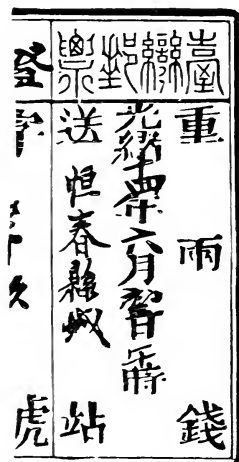 臺灣郵票
重 兩 錢
光緒十四年六月日時
送 恒春縣城 站
登字